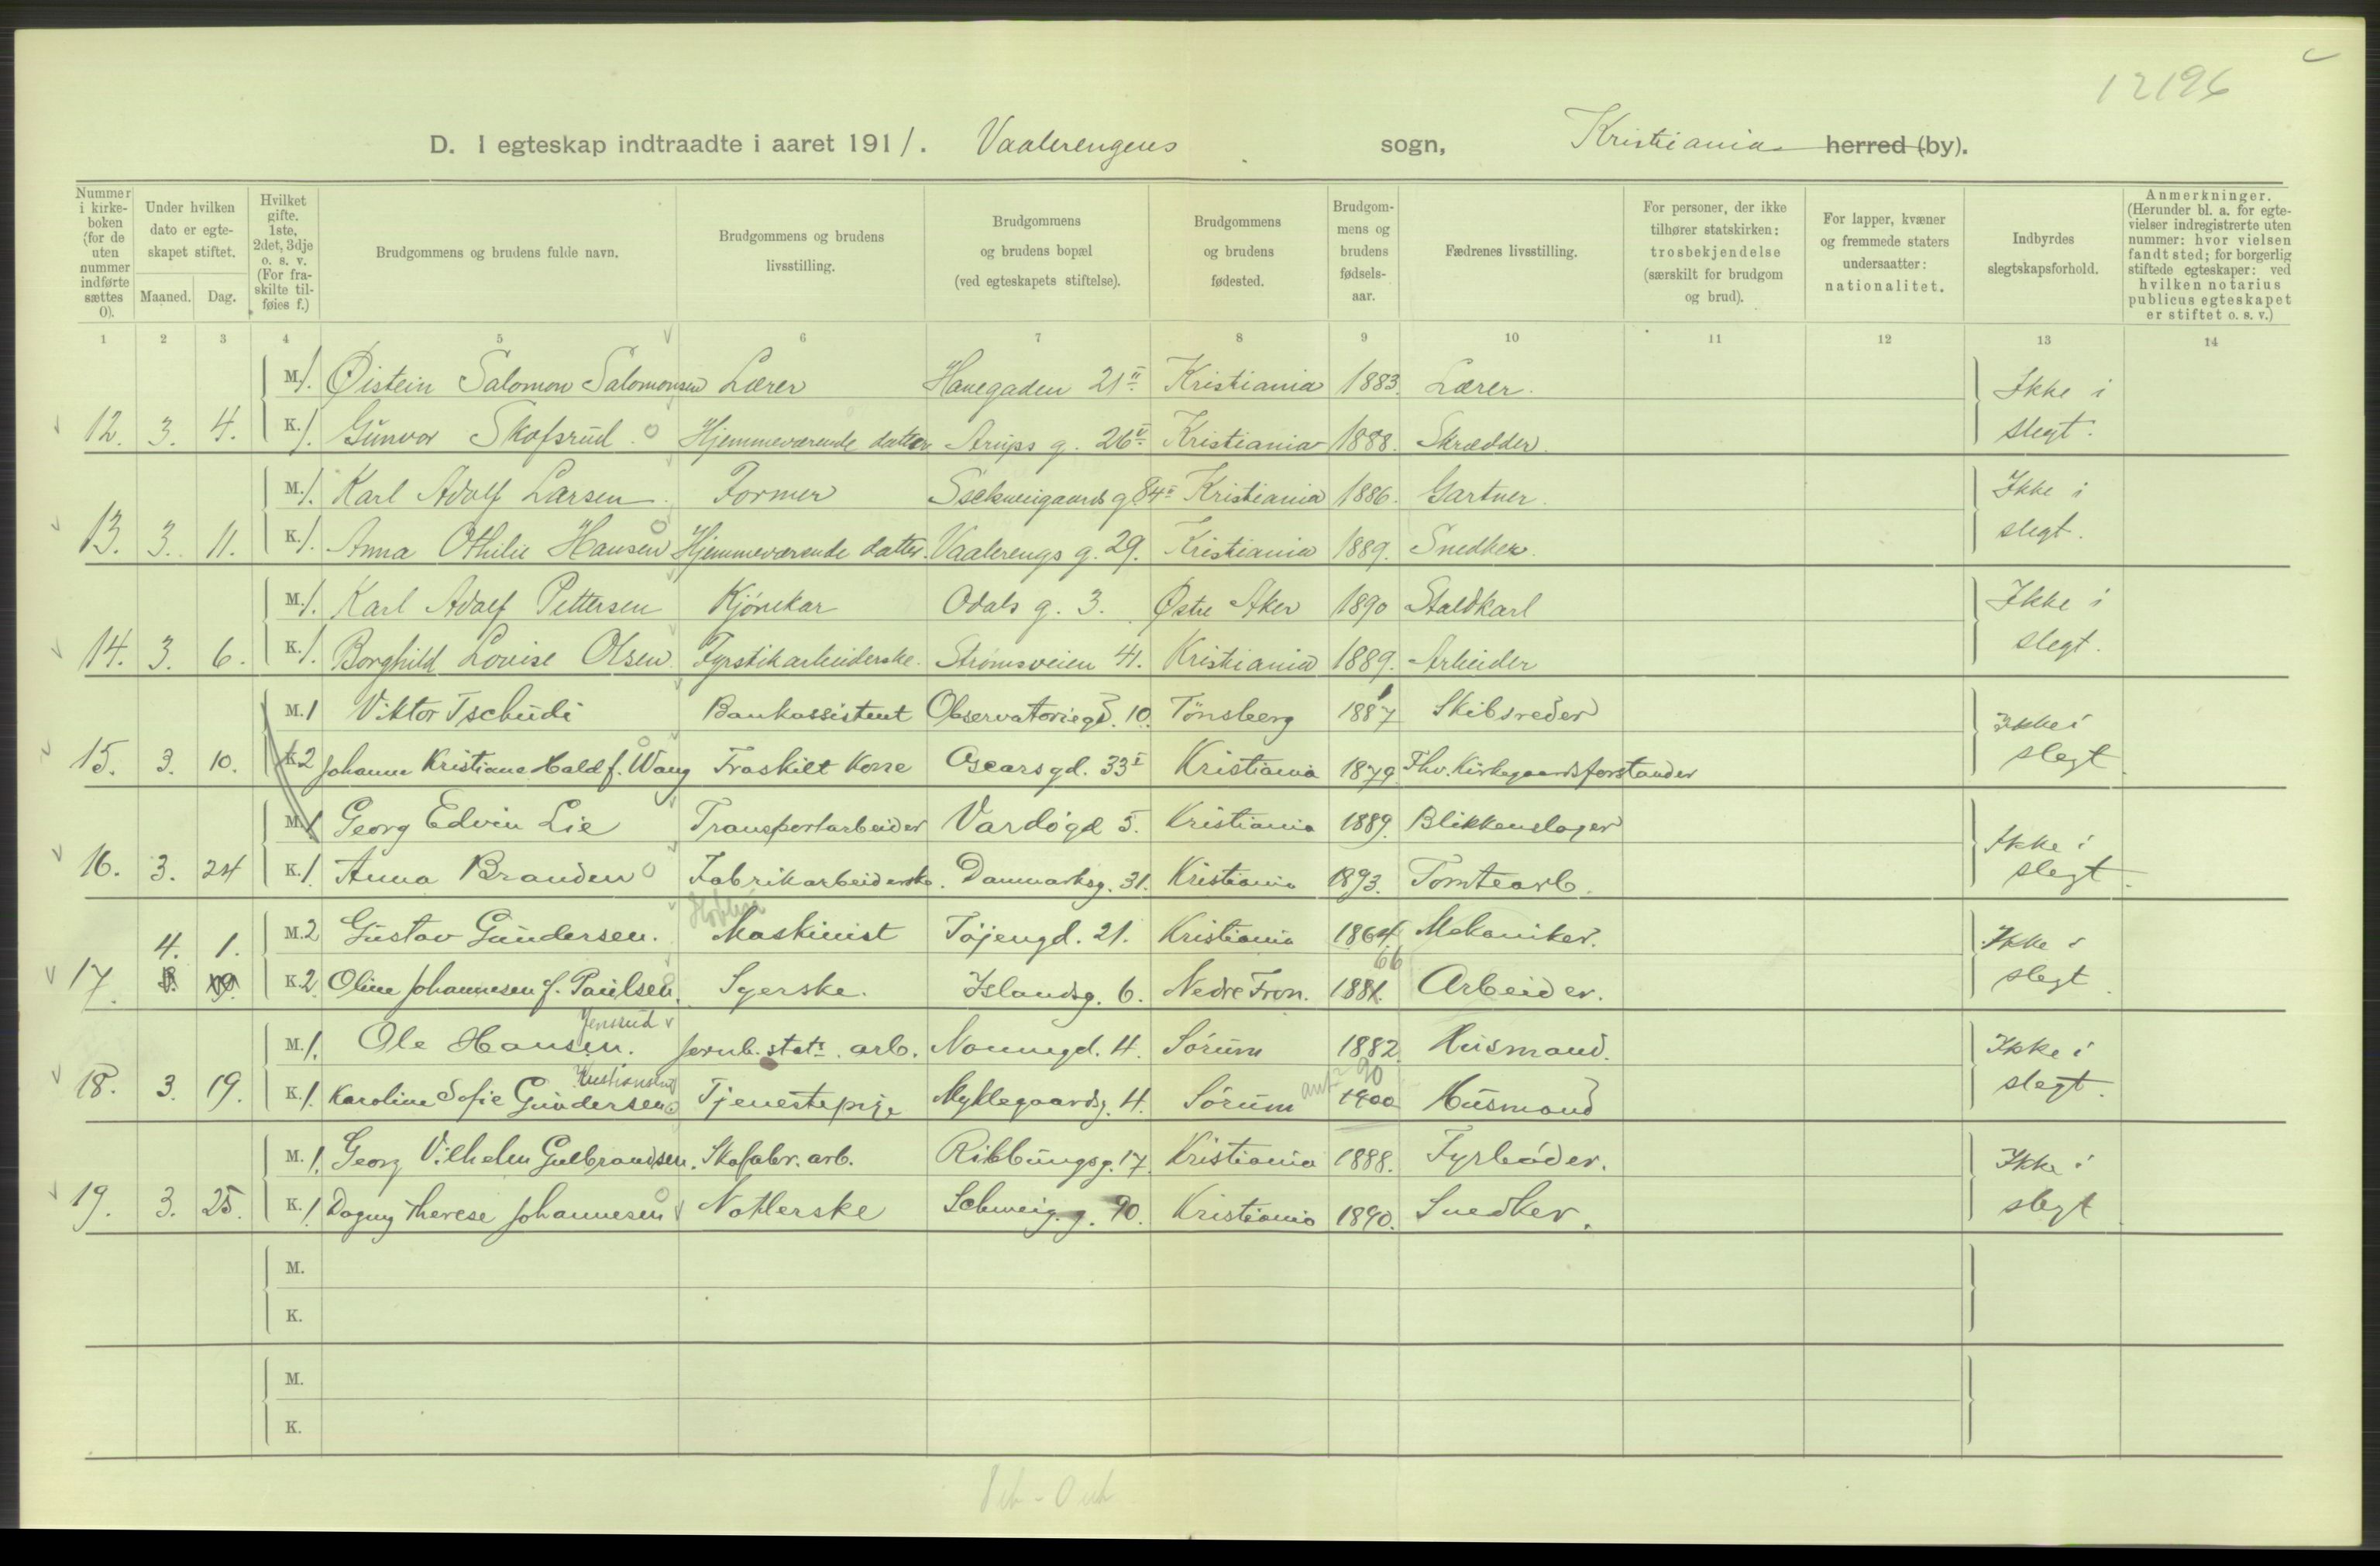 12196
D. I egteskap indtraadte i aaret 1911. Vaalerengens sogn, Kristiania herred (by).
Nummer i kirke-boken (for de uten nummer indførte sættes 0).
Under hvilken dato er egte-skapet stiftet.
Maaned. Dag.
Hvilket gifte. 1ste, 2det, 3dje o. s. v. (For fra-skilte til-føies f.)
Brudgommens og brudens fulde navn.
Brudgommens og brudens livsstilling.
Brudgommens og brudens bopæl (ved egteskapets stiftelse).
Brudgommens og brudens fødested.
Brudgom-mens og brudens fødsels-aar.
Fædrenes livsstilling.
For personer, der ikke tilhører statskirken: trosbekjendelse (særskilt for brudgom og brud).
For lapper, kvæner og fremmede staters undersaatter: nationalitet.
Indbyrdes slegtskapsforhold.
Anmerkninger. (Herunder bl. a. for egte-vielser indregistrerte uten nummer: hvor vielsen fandt sted; for borgerlig stiftede egteskaper: ved hvilken notarius publicus egteskapet er stiftet o. s. v.)
1 2 3 4 5 6 7 8 9 10 11 12 13 14
M. 1. Øistein Salomon Salomonsen Lærer Hanegaden 21 II Kristiania 1883. Lærer. Ikke i
12. 3. 4. K. 1. Gunvor Skofsrud. Hjemmeværende datter Arups g. 26 V Kristiania 1888. Skrædder. slegt.
M. 1. Karl Adolf Larsen. Former Sschweigaards g 84 II Kristiania 1886. Gartner. Ikke i
13. 3. 11. K. 1. Anna Othilie Hansen Hjemmeværende datter. Vaalerengs g. 29. Kristiania 1889. Snedker. slegt.
M. 1. Karl Adolf Pettersen Kjørekar Odals g. 3. Østre Aker 1890 Staldkarl Ikke i
14. 3. 6. K. 1. Borghild Lovise Olsen. Fyrstikarbeiderske. Strømsveien 41. Kristiania 1889. Arbeider slegt.
M. 1 Viktor Tschudi Bankassistent Observatoriegd. 10. Tønsberg 1887 Skibsreder Ikke i
15. 3. 10. K. 2 Johanne Kristiane Hald f. Wang Fraskilt Kone Oscarsgd. 33 I Kristiania 1879 Fhv. Kirkegaardsforstander slegt.
M. 1 Georg Edvin Lie Transportarbeider Vardøgd 5. Kristiania 1889. Blikkenslager Ikke i
16. 3. 24 K. 1 Anna Branden Fabrikarbeiderske. Danmarksg. 31. Kristiania 1893. Tomtearb. slegt.
4. 1. M. 2 Gustav Gundersen. Maskinist Tøjengd. 21. Kristiania 1864. Mekaniker. Ikke i
66
17. K. 2 Oline Johannesen f. Paulsen. Syerske. Islandsg. 6. Nedre Fron. 1881. Arbeider. slegt.
Jensrud
M. 1. Ole Hansen. Jernb. stats. arb. Nonnegd. 4. Sørum 1882. Husmand. Ikke i
Kristiansen 90
18. 3. 19. K. 1. Karoline Sofie Gundersen Tjenestepige Nyklegaardsg. 4. Sørum 1900 Husmand slegt.
M. 1. Georg Vilhelm Gulbrandsen. Skofabr. arb. Ribbungsg. 17. Kristiania 1888. Fyrbøder. Ikke i
19. 3. 25. K. 1 Dagny Therese Johannesen Natlerske Schweig. g. 90. Kristiania 1890. Snedker. slegt.
M.
K.
M.
K.